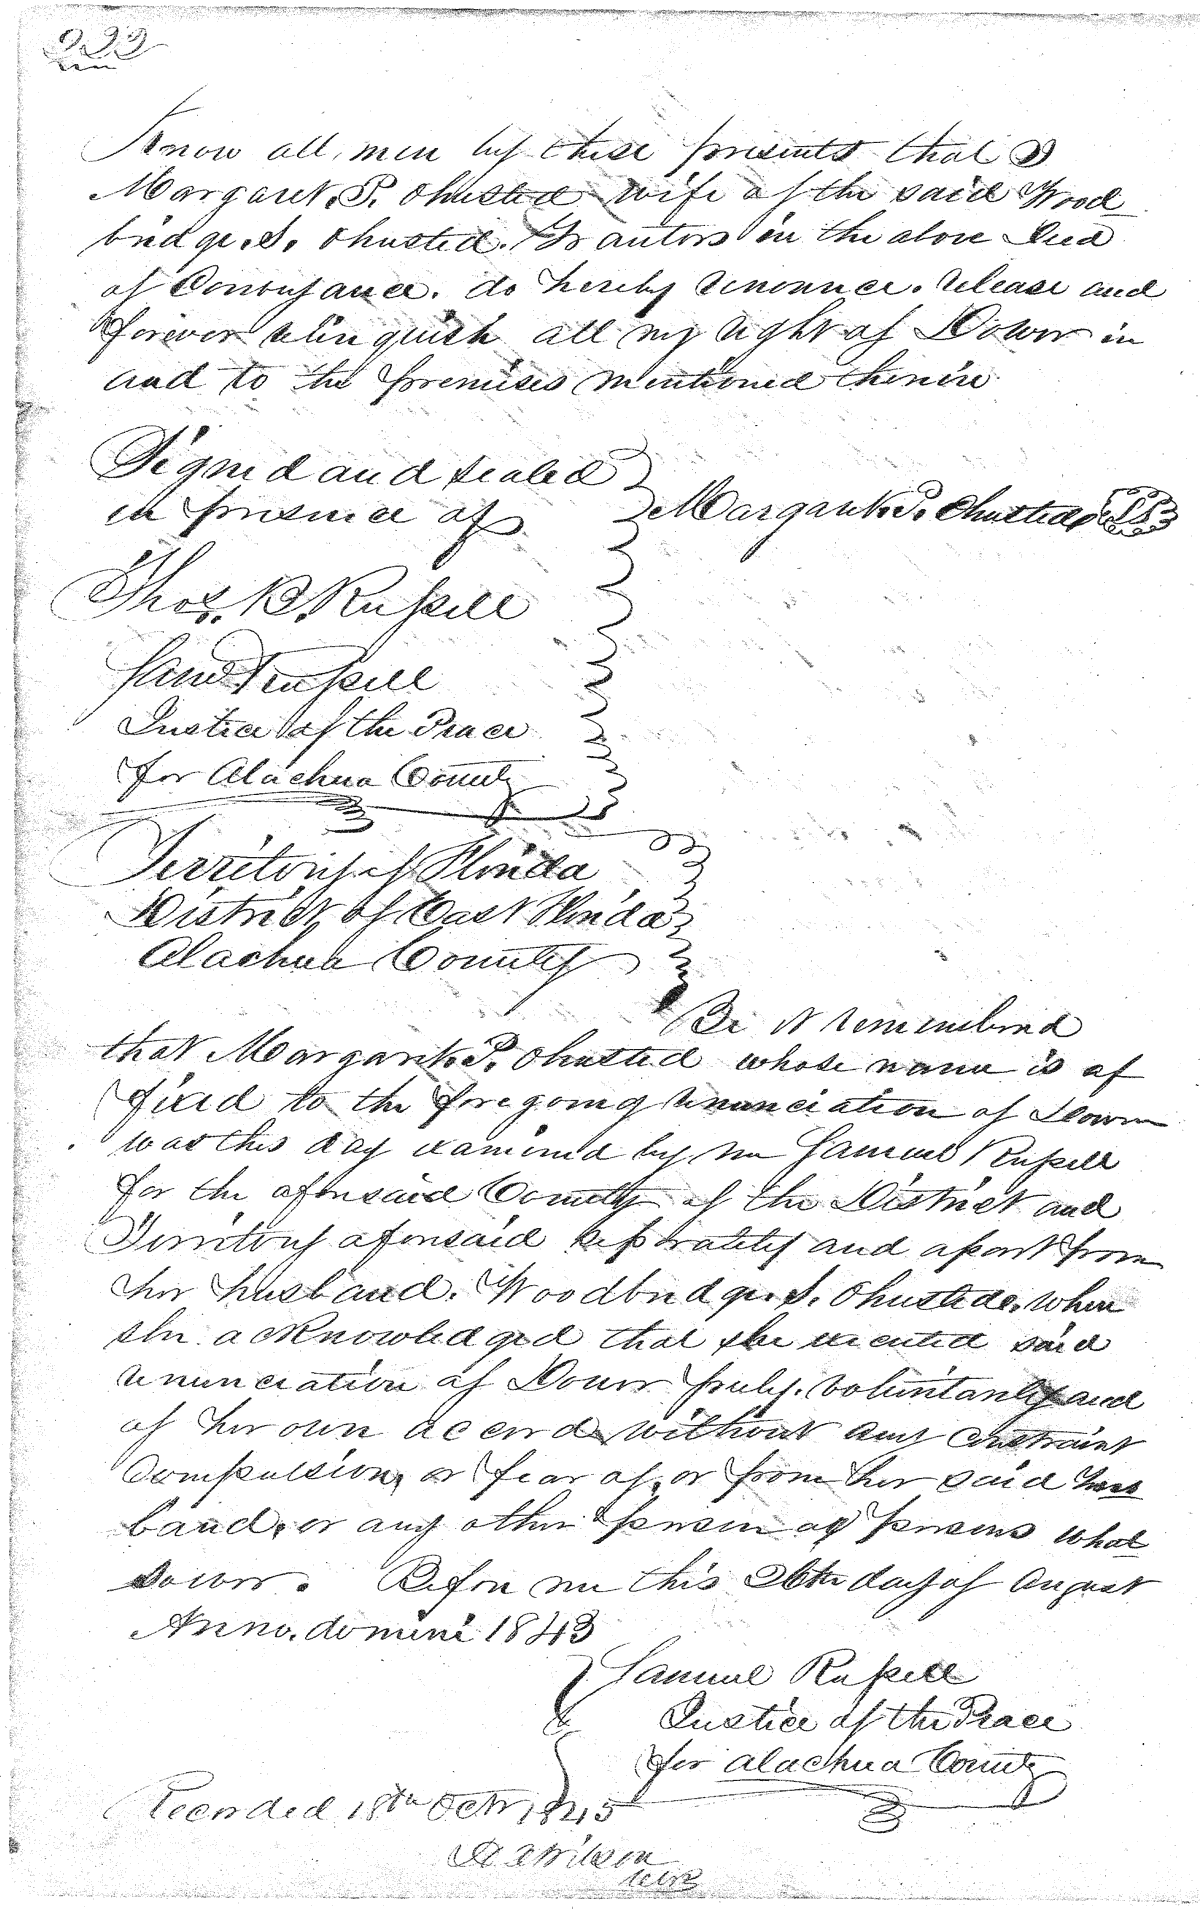 222
Know all men by these presents that I
Margaret. P. Olmsted wife of the said Wood
bridge. S. Olmsted. Grantors in the above Deed
of Conveyance. do hereby renounce. release and
forever relinquish all my right of Dower in
and to the premises mentioned therein
Signed and sealed
in presence of
Margaret. P. Olmsted LS
Thos. B. Russell
Saml Russell
Justice of the Peace
for Alachua County
Territory of Florida
District of East Florida
Alachua County
Be it remembered
that Margaret. P. Olmsted whose name is af
fixed to the foregoing renunciation of Dower
was this day examined by me Samuel Russell
for the aforesaid County of the District and
Territory aforesaid seperately and apart from
her husband. Woodbridge. S. Olmsted. when
she acknowledged that she executed said
renunciation of Dower freely. voluntarily and
of her own accord without any constraint
Compulsion, or fear of, or from her said hus
band, or any other person or persons what
soever. Before me this 26th day of August
Anno. domini 1843
Samuel Russell
Justice of the Peace
for Alachua County
Recorded 18th Oct 1845
Wilson